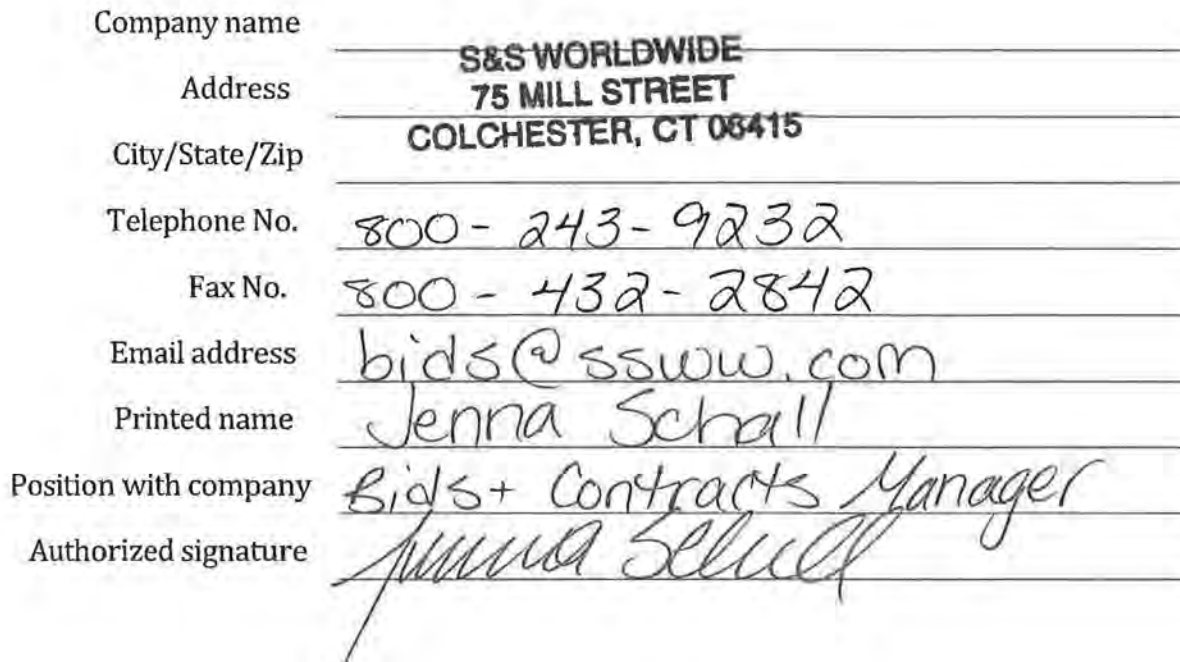 Company name
S&S WORLDWIDE
Address
75 MILL STREET
City/State/Zip
COLCHESTER, CT 06415
Telephone No. 800-243-9232
Fax No. 800-432-2842
Email address bids@ssww.com
Printed name Jenna Schall
Position with company Bids+ Contracts Manager
Authorized signature Jenna Schall